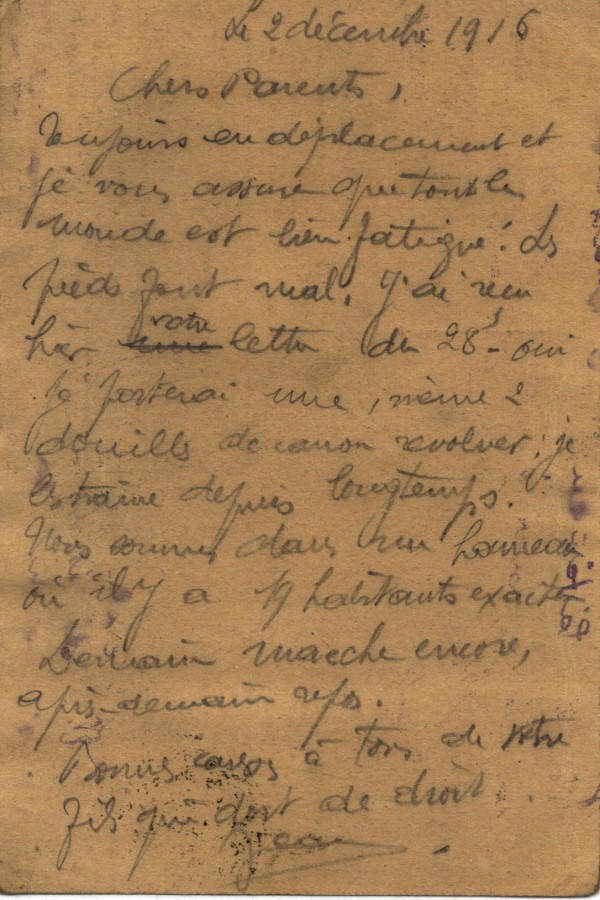 Le 2 décembre 1916
Chers Parents,
Toujours en déplacement et
je vous assure que tout le
monde est bien fatigué! Les
pieds font mal. J'ai reçu
hier votre lettre du 28 - oui
je porterai une, même 2
douilles de canon revolver; je
les traine depuis longtemps.
Nous sommes dans un hameau
où il y a 19 habitants exactem.
Demain marche encore,
après-demain repos.
Bonnes à tous de votre
fils qui dort de droit
Jean